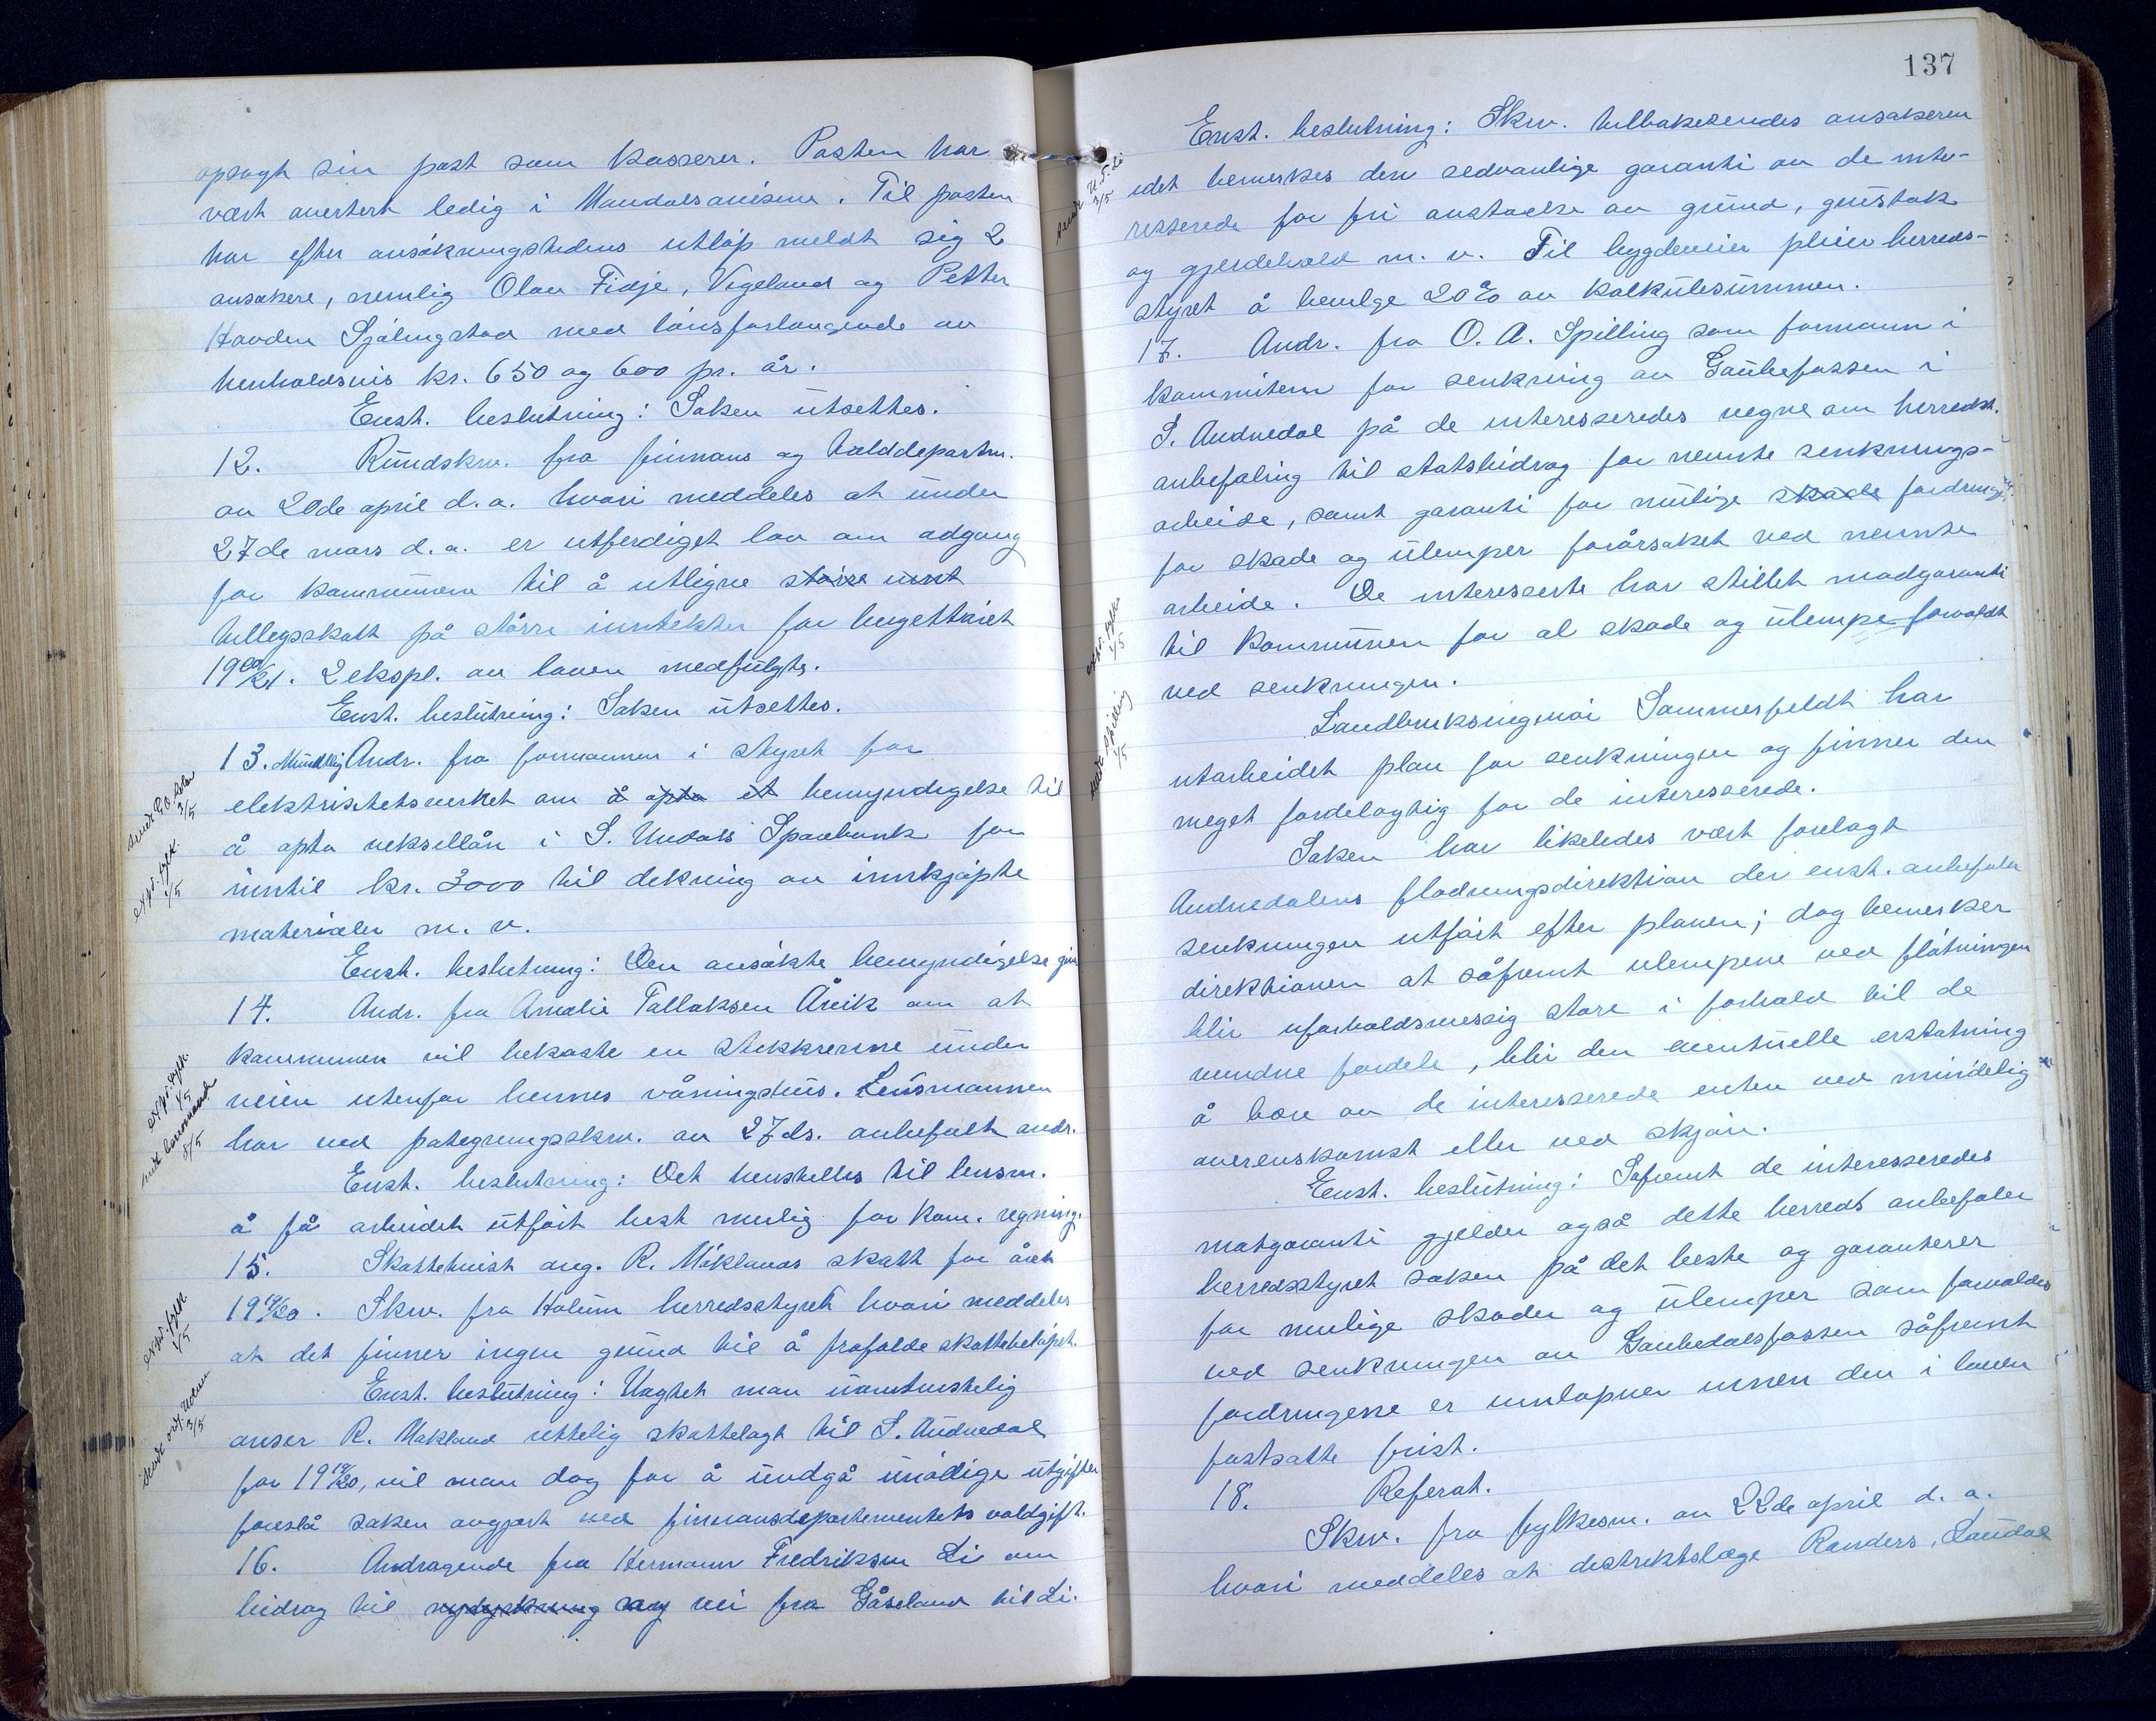 opsagt sin post som kasserer. Posten har
vært avertert ledig i Mandalsavisene. Til posten
har efter ansökningstidens utlöp meldt sig 2
ansökere, nemlig Olav Fidje, Vigeland og Petter
Hovden Sjölingstad med lönsforlangende av
henholdsvis kr. 650 og 600 pr. år.
Enst. beslutning: Saken utsettes.
12. Rundskrv. fra finnans og tolddepartm.
av 20de april d.a. hvori meddeles at under
27de mars d.a. er utferdiget lov om adgang
for kommunene til å utligne större innt
tillegsskatt på större inntekter for bugettåret
1920/21. 2 ekspl. av loven medfulgte.
Enst. beslutning: Saken utsettes.
13. Mundtlig Andr. fra formannen i styret for
elektrisitetsverket om å opta et bemyndigelse til
å opta veksellån i S. Undals Sparebank for
inntil kr. 3000 til dekning av innkjöpte
materialer m. v.
Enst. beslutning: Den ansökte bemyndigelse gis
14. Andr. fra Amalie Tallaksen Åvik om at
kommunen vil bekoste en stikkrenne under
veien utenfor hennes våningshus. Lensmannen
har ved pategningsskrv. av 27 ds. anbefalt andr.
Enst. beslutning: Det henstilles til lensm.
å få arbeidet utfört best mulig for kom. regning.
15. Skattetvist ang. R. Möklands skatt for året
1919/20. Skrv. fra Holum herredsstyret hvori meddeles
at det finner ingen grund til å frafalde skattebelöpet.
Enst. beslutning: Uagtet man uomtvistelig
anser R. Mökland rettelig skattelagt til S. Audnedal
for 1919/20, vil man dog for å undgå unödige utgifter
foreslå saken avgjort ved finnansdepartementets voldgift.
16. Andragende fra Hermann Fredriksen Li om
bidrag til nydyrkning ny vei fra Gåseland til Li.
sendt
3/5
expr. fylk.
1/5
expr. fylk.
1/5
sendt lensmand
3/5
expr. fylk.
1/5
sendt
3/5
137
Enst. beslutning: Skrv. tilbakesendes ansökeren
idet bemerkes den sedvanlige garanti av de inte-
resserede for fri avståelse av grund, grustak
og gjerdehold m. v. Til bygdeveier pleier herreds-
styret å bevilge 20% av kalkulesummen.
17. Andr. fra O. A. Spilling som formann i
kommiteen for senkning av Gaubefossen i
S. Audnedal på de interesseredes vegne om herredst.
anbefaling til statsbidrag for nevnte senknings-
arbeide, samt garanti for mulige skade fordringer
for skade og ulemper forårsaket ved nevnte
arbeide. De interesserte har stillet modgaranti
til kommunen for al skade og ulempe forvoldt
ved senkningen.
Landbruksingeniör Sommerfeldt har
utarbeidet plan for senkningen og finner den
meget fordelagtig for de interesserede.
Saken har likeledes vært forelagt
Audnedalens flödningsdirektion der enst. anbefaler
senkningen utfört efter planen; dog bemerker
direktionen at såfremt ulempene ved flötningen
blir uforholdsmessig store i forhold til de
vundne fordele, blir den eventuelle erstatning
å bære av de interesserede enten ved mindelig
overenskomst eller ved skjön.
Enst. beslutning: Såfremt de interesseredes
motgaranti gjelder også dette herred anbefaler
herredsstyret saken på det beste og garanterer
for mulige skader og ulemper som forvoldes
ved senkningen av Gaubedalsfossen såfremt
fordringene er innlöpner innen den i loven
fastsatte frist.
18. Referat.
Skrv. fra fylkesm. av 22de april d. a.
hvori meddeles at distriktslæge Randers, Laudal
sendt
3/5
expr. fylk.
1/5
sendt Spilling
1/5